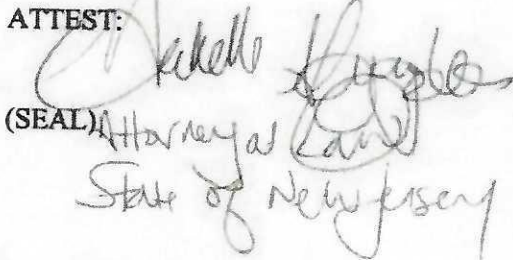 ATTEST:
(SEAL) Attorney at Law
State of New Jersey